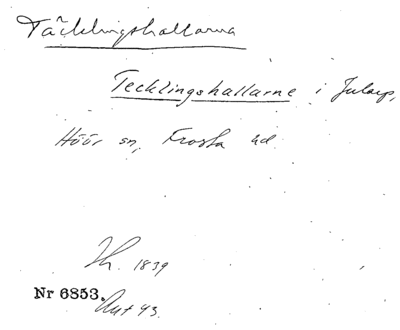 Täcklingshallarna
Tecklingshallarne i Jularp,
Höör sn, Frosta hd.
1839
Nr 6853.
Aut 43.